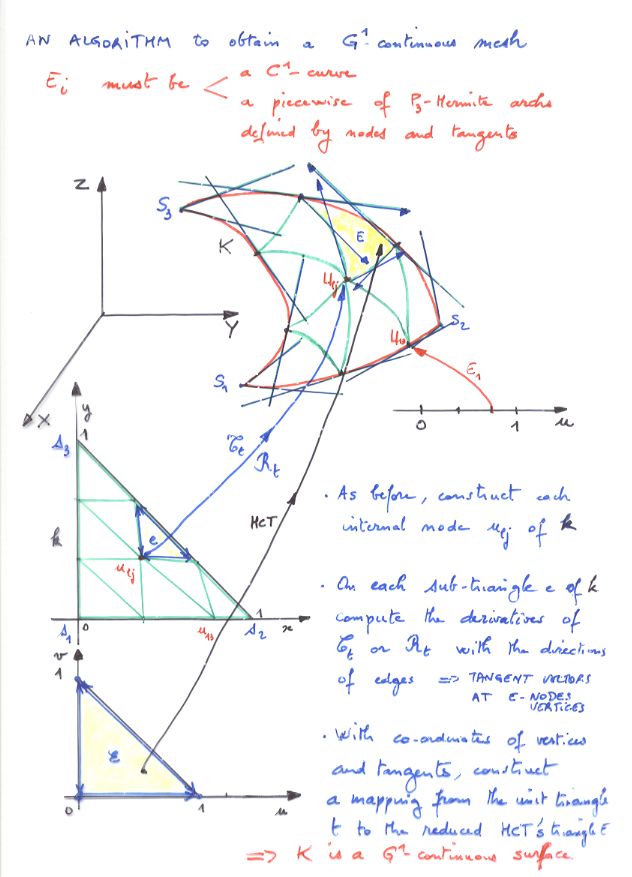 AN ALGORITHM to obtain a G¹-continuous mesh
Ei must be
a C¹-curve
a piecewise of P3-Hermite archs
defined by nodes and tangents
Z
S3
E
K
Y
S2
S1
E1
X
0 1 u
y
1
s3
Ct
Rt
HCT
k
e
uij
s1 0 u13 s2 1 x
v
1
ε
0 1 u
. As before, construct each
internal node uij of k
. On each sub-triangle e of k
compute the derivatives of
Ct or Rt with the directions
of edges => TANGENT VECTORS
AT E-NODES
VERTICES
. With co-ordinates of vertices
and tangents, construct
a mapping from the unit triangle
t to the reduced HCT's triangle E
=> K is a G¹-continuous surface.